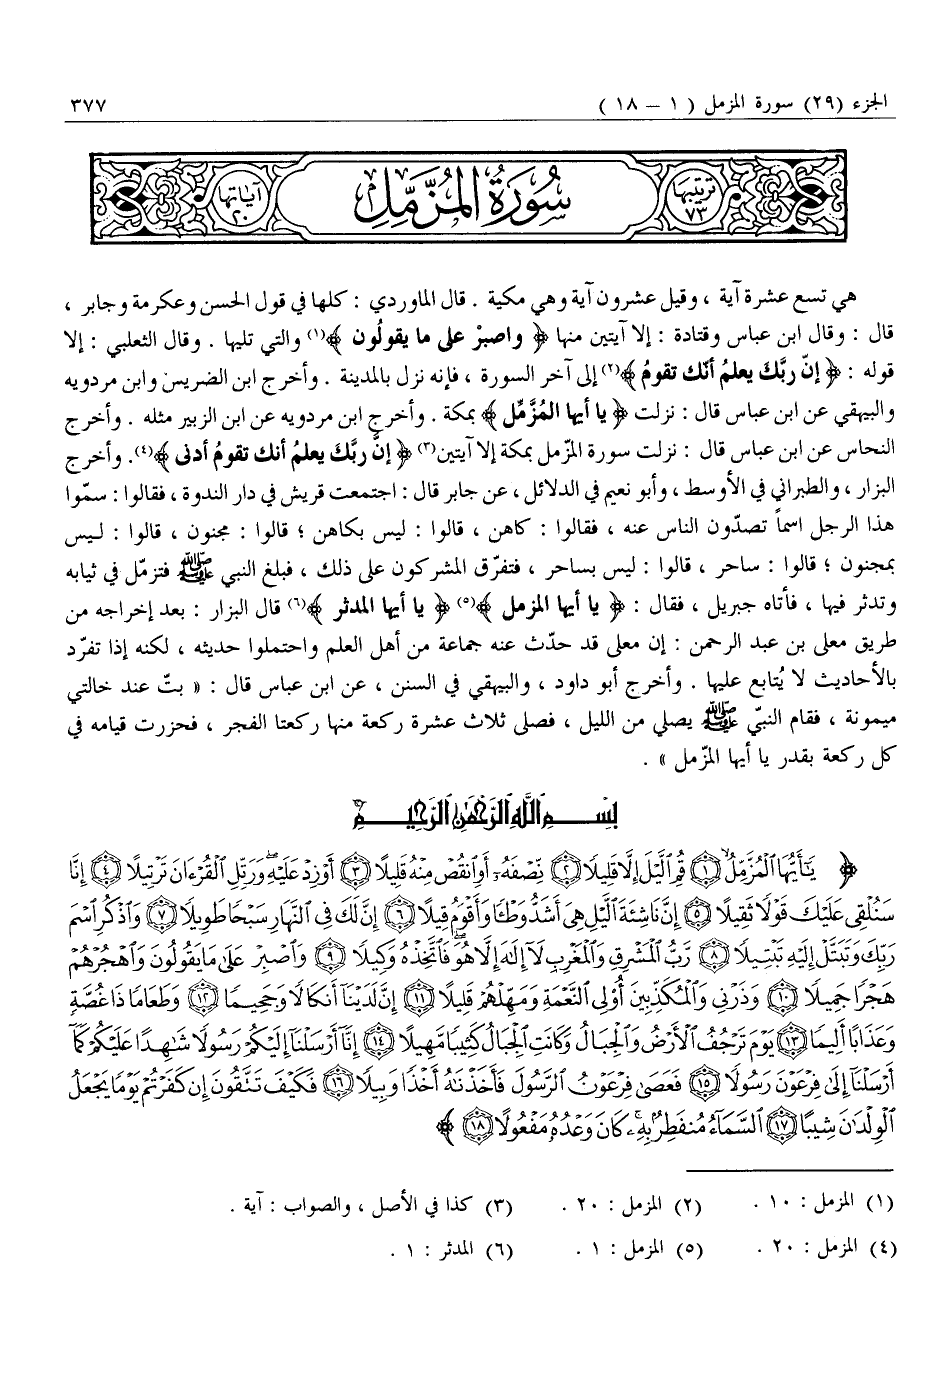 الجزء (٢٩) سورة المزمل ( ١ – ١٨ ) ٣٧٧
ترتيبها ٧٣ سُورَةُ المُزَّمِّل آياتها ٢٠
هي تسع عشرة آية ، وقيل عشرون آية وهي مكية . قال الماوردي : كلها في قول الحسن وعكرمة وجابر ،
قال : وقال ابن عباس وقتادة : إلا آيتين منها ﴿ واصبرْ على ما يقولُون ﴾(١) والتي تليها . وقال الثعلبي : إلا
قوله : ﴿ إنّ ربَّك يعلمُ أنّك تقومُ ﴾(٢) إلى آخر السورة ، فإنه نزل بالمدينة . وأخرج ابن الضريس وابن مردويه
والبيهقي عن ابن عباس قال : نزلت ﴿ يا أيها المُزَّمِّل ﴾ بمكة . وأخرج ابن مردويه عن ابن الزبير مثله . وأخرج
النحاس عن ابن عباس قال : نزلت سورة المزّمل بمكة إلا آيتين(٣) ﴿ إنَّ ربَّكَ يعلمُ أنك تقومُ أدنى ﴾(٤). وأخرج
البزار ، والطبراني في الأوسط ، وأبو نعيم في الدلائل ، عن جابر قال : اجتمعت قريش في دار الندوة ، فقالوا : سمّوا
هذا الرجل اسماً تصدّون الناس عنه ، فقالوا : كاهن ، قالوا : ليس بكاهن ؛ قالوا : مجنون ، قالوا : ليس
بمجنون ؛ قالوا : ساحر ، قالوا : ليس بساحر ، فتفرّق المشركون على ذلك ، فبلغ النبي ﷺ فتزمّل في ثيابه
وتدثر فيها ، فأتاه جبريل ، فقال : ﴿ يا أيها المزمل ﴾(٥) ﴿ يا أيها المدثر ﴾(٦) قال البزار : بعد إخراجه من
طريق معلى بن عبد الرحمن : إن معلى قد حدّث عنه جماعة من أهل العلم واحتملوا حديثه ، لكنه إذا تفرّد
بالأحاديث لا يُتابع عليها . وأخرج أبو داود ، والبيهقي في السنن ، عن ابن عباس قال : « بتّ عند خالتي
ميمونة ، فقام النبيّ ﷺ يصلي من الليل ، فصلى ثلاث عشرة ركعة منها ركعتا الفجر ، فحزرت قيامه في
كل ركعة بقدر يا أيها المزّمل » .
بِسْمِ اللَّهِ الرَّحْمَٰنِ الرَّحِيمِ
﴿ يَٰٓأَيُّهَا ٱلْمُزَّمِّلُ ١ قُمِ ٱلَّيْلَ إِلَّا قَلِيلًا ٢ نِّصْفَهُۥٓ أَوِ ٱنقُصْ مِنْهُ قَلِيلًا ٣ أَوْ زِدْ عَلَيْهِ وَرَتِّلِ ٱلْقُرْءَانَ تَرْتِيلًا ٤ إِنَّا
سَنُلْقِى عَلَيْكَ قَوْلًا ثَقِيلًا ٥ إِنَّ نَاشِئَةَ ٱلَّيْلِ هِىَ أَشَدُّ وَطْـًٔا وَأَقْوَمُ قِيلًا ٦ إِنَّ لَكَ فِى ٱلنَّهَارِ سَبْحًا طَوِيلًا ٧ وَٱذْكُرِ ٱسْمَ
رَبِّكَ وَتَبَتَّلْ إِلَيْهِ تَبْتِيلًا ٨ رَّبُّ ٱلْمَشْرِقِ وَٱلْمَغْرِبِ لَآ إِلَٰهَ إِلَّا هُوَ فَٱتَّخِذْهُ وَكِيلًا ٩ وَٱصْبِرْ عَلَىٰ مَا يَقُولُونَ وَٱهْجُرْهُمْ
هَجْرًا جَمِيلًا ١٠ وَذَرْنِى وَٱلْمُكَذِّبِينَ أُو۟لِى ٱلنَّعْمَةِ وَمَهِّلْهُمْ قَلِيلًا ١١ إِنَّ لَدَيْنَآ أَنكَالًا وَجَحِيمًا ١٢ وَطَعَامًا ذَا غُصَّةٍ
وَعَذَابًا أَلِيمًا ١٣ يَوْمَ تَرْجُفُ ٱلْأَرْضُ وَٱلْجِبَالُ وَكَانَتِ ٱلْجِبَالُ كَثِيبًا مَّهِيلًا ١٤ إِنَّآ أَرْسَلْنَآ إِلَيْكُمْ رَسُولًا شَٰهِدًا عَلَيْكُمْ كَمَآ
أَرْسَلْنَآ إِلَىٰ فِرْعَوْنَ رَسُولًا ١٥ فَعَصَىٰ فِرْعَوْنُ ٱلرَّسُولَ فَأَخَذْنَٰهُ أَخْذًا وَبِيلًا ١٦ فَكَيْفَ تَتَّقُونَ إِن كَفَرْتُمْ يَوْمًا يَجْعَلُ
ٱلْوِلْدَٰنَ شِيبًا ١٧ ٱلسَّمَآءُ مُنفَطِرٌۢ بِهِۦ كَانَ وَعْدُهُۥ مَفْعُولًا ١٨ ﴾
(١) المزمل : ١٠ . (٢) المزمل : ٢٠ . (٣) كذا في الأصل ، والصواب : آية .
(٤) المزمل : ٢٠ . (٥) المزمل : ١ . (٦) المدثر : ١ .